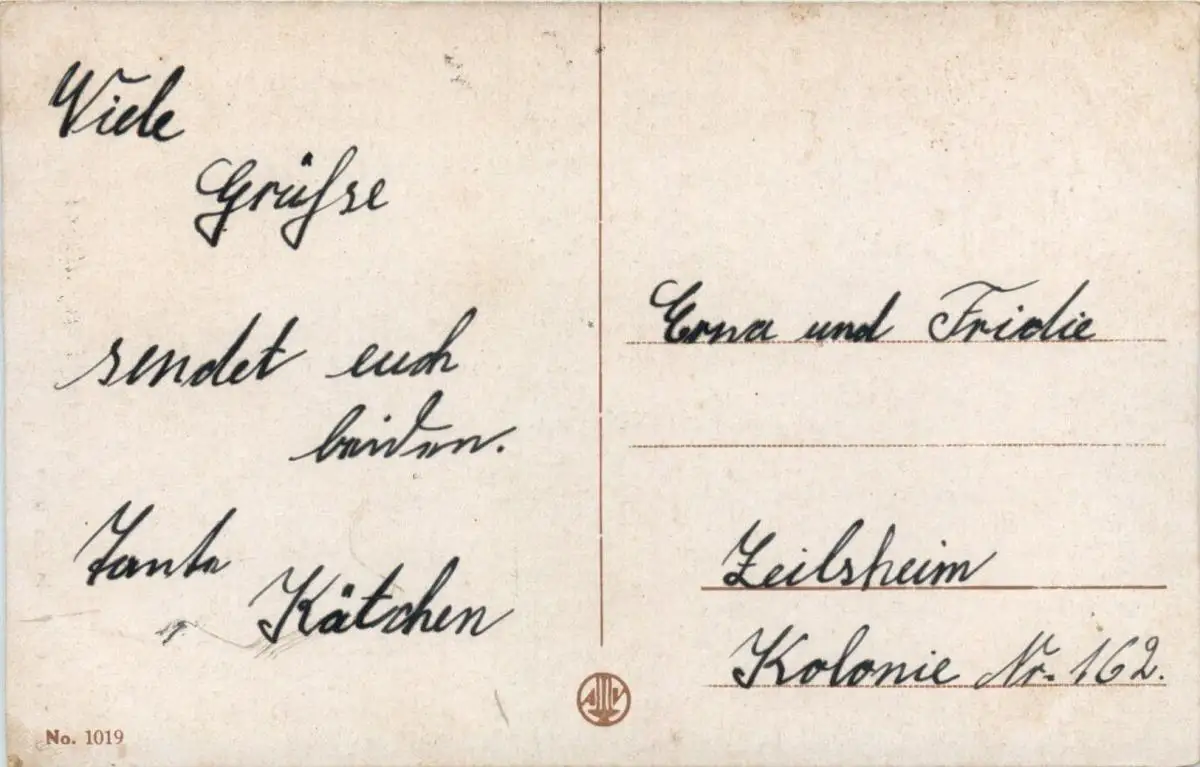 Viele
Grüſse
sendet euch
beiden.
Tante
Kätchen
Erna und Fridie
Zeilsheim
Kolonie Nr. 162.
No. 1019